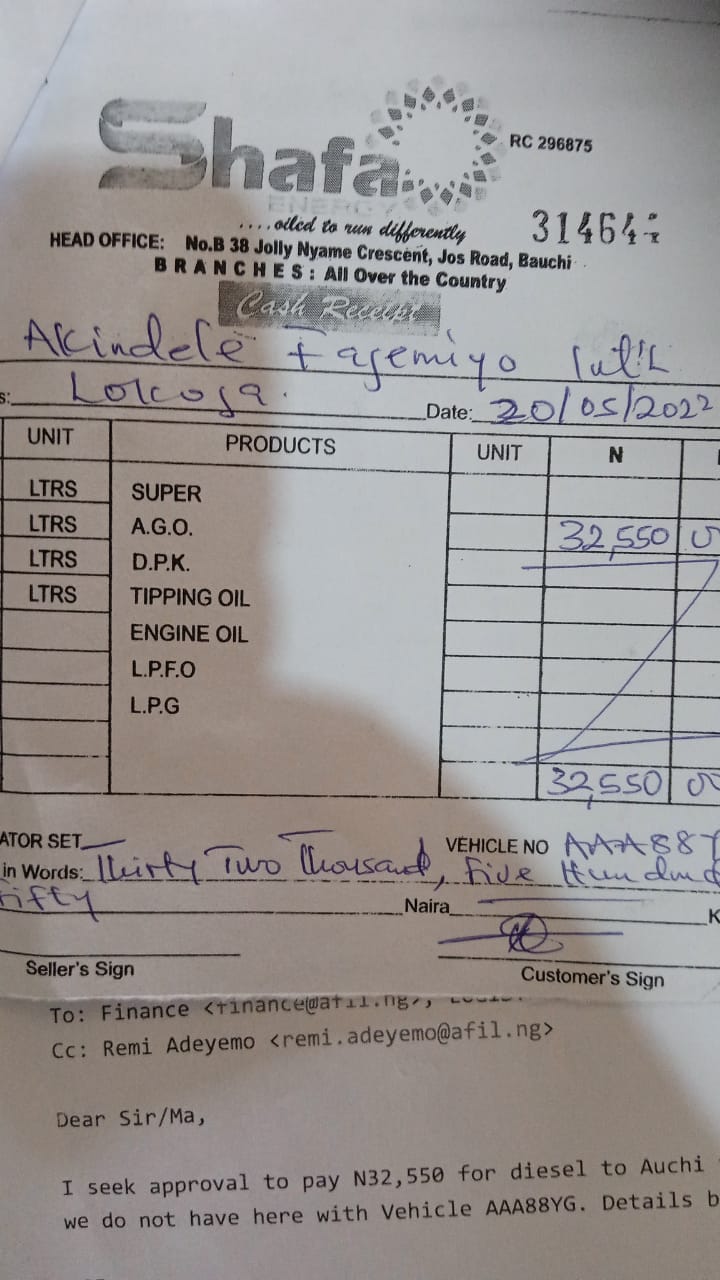 Shafa
ENERGY
RC 296875
....oiled to run differently
31464
HEAD OFFICE: No.B 38 Jolly Nyame Crescent, Jos Road, Bauchi
BRANCHES: All Over the Country
Cash Receipt
Akindele Fasemiyo Int'l
s: Lokoja.
Date: 20/05/2022
UNIT PRODUCTS UNIT N
LTRS SUPER
LTRS A.G.O. 32,550
LTRS D.P.K.
LTRS TIPPING OIL
ENGINE OIL
L.P.F.O
L.P.G
32,550
ATOR SET VEHICLE NO AAA88Y
in Words: Thirty Two Thousand, Five Hundred
Fifty Naira K
Seller's Sign
Customer's Sign
To: Finance <finance@afil.ng>,
Cc: Remi Adeyemo <remi.adeyemo@afil.ng>
Dear Sir/Ma,
I seek approval to pay N32,550 for diesel to Auchi
we do not have here with Vehicle AAA88YG. Details b